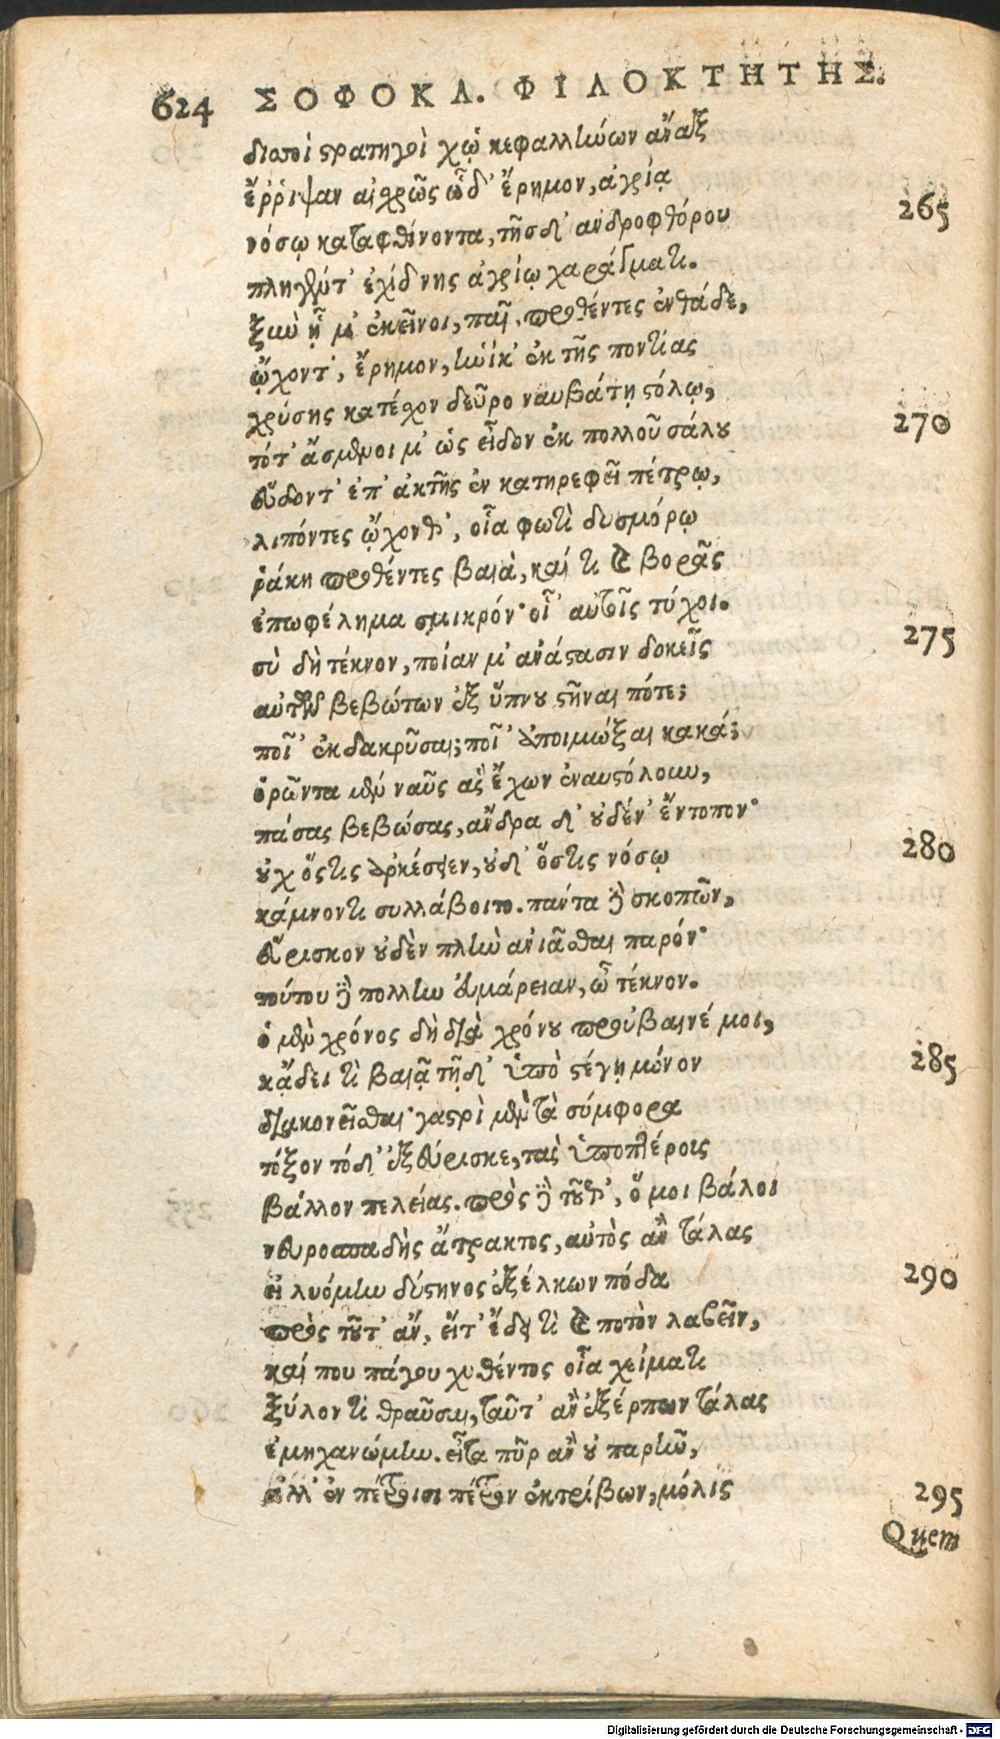 624 ΣΟΦΟΚΛ. ΦΙΛΟΚΤΗΤΗΣ.
δισσοὶ στρατηγοὶ χᾠ κεφαλλήνων ἄναξ
ἔῤῥιψαν αἰσχρῶς ὧδ' ἔρημον, ἀγρίᾳ 265
νόσῳ καταφθίνοντα, τῆσδ' ἀνδροφθόρου
πληγέντ' ἐχίδνης ἀγρίῳ χαράγματι.
ξὺν ᾗ μ' ἐκεῖνοι, παῖ, προθέντες ἐνθάδε,
ᾤχοντ', ἔρημον, ἡνίκ' ἐκ τῆς ποντίας
χρύσης κατέσχον δεῦρο ναυβάτῃ στόλῳ, 270
τότ' ἄσμενοι μ' ὡς εἶδον ἐκ πολλοῦ σάλου
εὕδοντ' ἐπ' ἀκτῆς ἐν κατηρεφεῖ πέτρῳ,
λιπόντες ᾤχονθ', οἷα φωτὶ δυσμόρῳ
ῥάκη προθέντες βαιὰ, καί τι καὶ βορᾶς
ἐπωφέλημα σμικρόν· οἷ' αὐτοῖς τύχοι. 275
σὺ δὴ τέκνον, ποίαν μ' ἀνάστασιν δοκεῖς
αὐτῶν βεβώτων ἐξ ὕπνου στῆναι πότε;
ποῖ' ἐκδακρῦσαι; ποῖ' ἀποιμώξαι κακά;
ὁρῶντα μὲν ναῦς ἃς ἔχων ἐναυστόλουν,
πάσας βεβώσας, ἄνδρα δ' οὐδέν' ἔντοπον· 280
οὐχ ὅςτις ἀρκέσειεν, οὐδ' ὅστις νόσῳ
κάμνοντι συλλάβοιτο. πάντα δὲ σκοπῶν,
εὕρισκον οὐδὲν πλὴν ἀνιᾶσθαι παρόν·
τούτου δὲ πολλὴν εὐμάρειαν, ὦ τέκνον.
ὁ μὲν χρόνος δὴ διὰ χρόνου προὔβαινέ μοι, 285
κᾄδει τὶ βαιᾷ τῇδ' ὑπὸ στέγῃ μόνον
διακονεῖσθαι· γαστρὶ μὲν τὰ σύμφορα
τόξον τόδ' ἐξεύρισκε, τὰς ὑποπτέροις
βάλλον πελείας. πρὸς δὲ τοῦθ', ὅ μοι βάλοι
νευροσπαδὴς ἄτρακτος, αὐτὸς ἂν τάλας 290
εἰλυόμην δύστηνος ἐξέλκων πόδα
πρὸς τοῦτ' ἄν, εἴτ' ἔδει τὶ καὶ ποτὸν λαβεῖν,
καί που πάγου χυθέντος οἷα χείματι
ξύλον τὶ θραῦσαι, ταῦτ' ἂν ἐξέρπων τάλας
ἐμηχανώμην. εἶτα πῦρ ἂν οὐ παρῆν,
ἀλλ' ἐν πέτροισι πέτρον ἐκτρίβων, μόλις 295
Quem
Digitalisierung gefördert durch die Deutsche Forschungsgemeinschaft - DFG